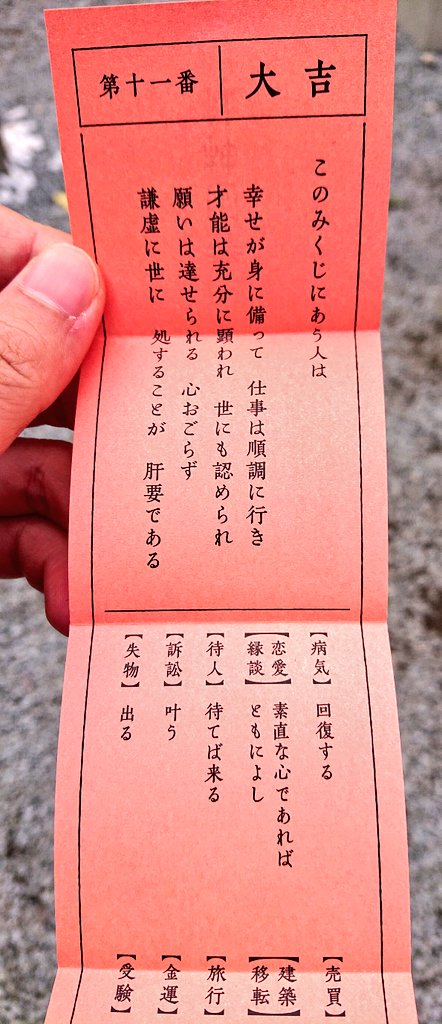 大吉
第十一番
このみくじにあう人は
幸せが身に備って 仕事は順調に行き
才能は充分に顕われ 世にも認められ
願いは達せられる 心おごらず
謙虚に世に 処することが 肝要である
【病気】回復する
【恋愛】
【縁談】
素直な心であれば
ともによし
【待人】待てば来る
【訴訟】叶う
【失物】出る
【売買】
【建築】
【移転】
【旅行】
【金運】
【受験】